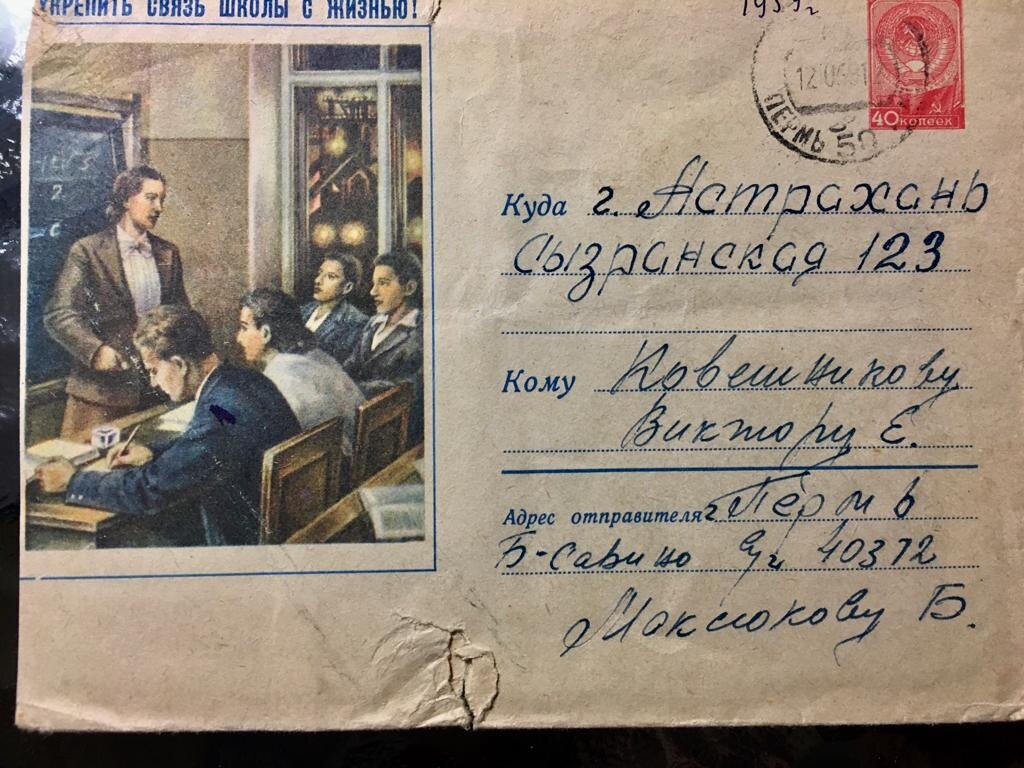 УКРЕПИТЬ СВЯЗЬ ШКОЛЫ С ЖИЗНЬЮ!
1959 г
ПЕРМЬ 50
40 КОПЕЕК
Куда г. Астрахань
Сызранская 123
Кому Ковешникову
Виктору Е.
Адрес отправителя г Пермь
Б-Савино 40372
Максюкову Б.